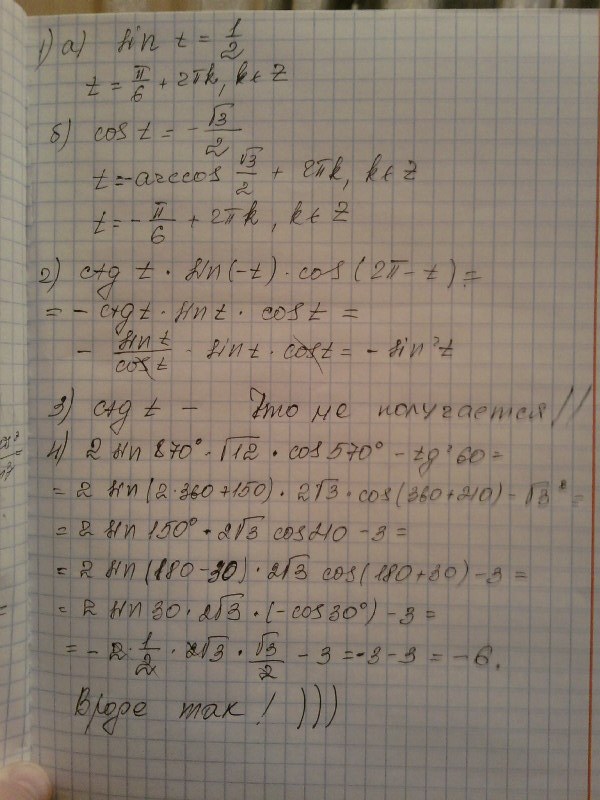 1) а) sin t = 1/2
t = π/6 + 2πk, k ∈ Z
б) cos t = - √3/2
t = -arccos √3/2 + 2πk, k ∈ Z
t = - π/6 + 2πk, k ∈ Z
2) ctg t · sin(-t) · cos(2π - t) =
= - ctg t · sin t · cos t =
- sin t/cos t · sin t · cos t = - sin² t
3) ctg t - Это не получается//
4) 2 sin 870° · √12 · cos 570° - tg² 60 =
= 2 sin (2·360+150) · 2√3 · cos(360+210) - √3² =
= 2 sin 150° · 2√3 cos 210 - 3 =
= 2 sin (180-30) · 2√3 cos(180+30) - 3 =
= 2 sin 30 · 2√3 · (-cos 30°) - 3 =
= - 2 · 1/2 · 2√3 · √3/2 - 3 = -3 - 3 = -6.
Вроде так! )))